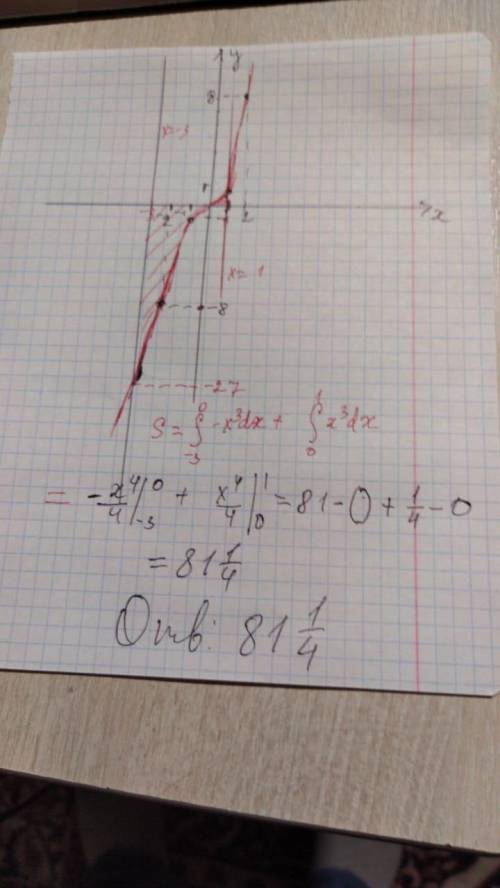 y
8
x=-3
1
-3 -2 -1 2 x
x=1
-8
-27
S = ∫₋₃⁰ -x³dx + ∫₀¹ x³dx
= -x⁴/4 |₋₃⁰ + x⁴/4 |₀¹ = 81 - 0 + 1/4 - 0
= 81 1/4
Отв: 81 1/4